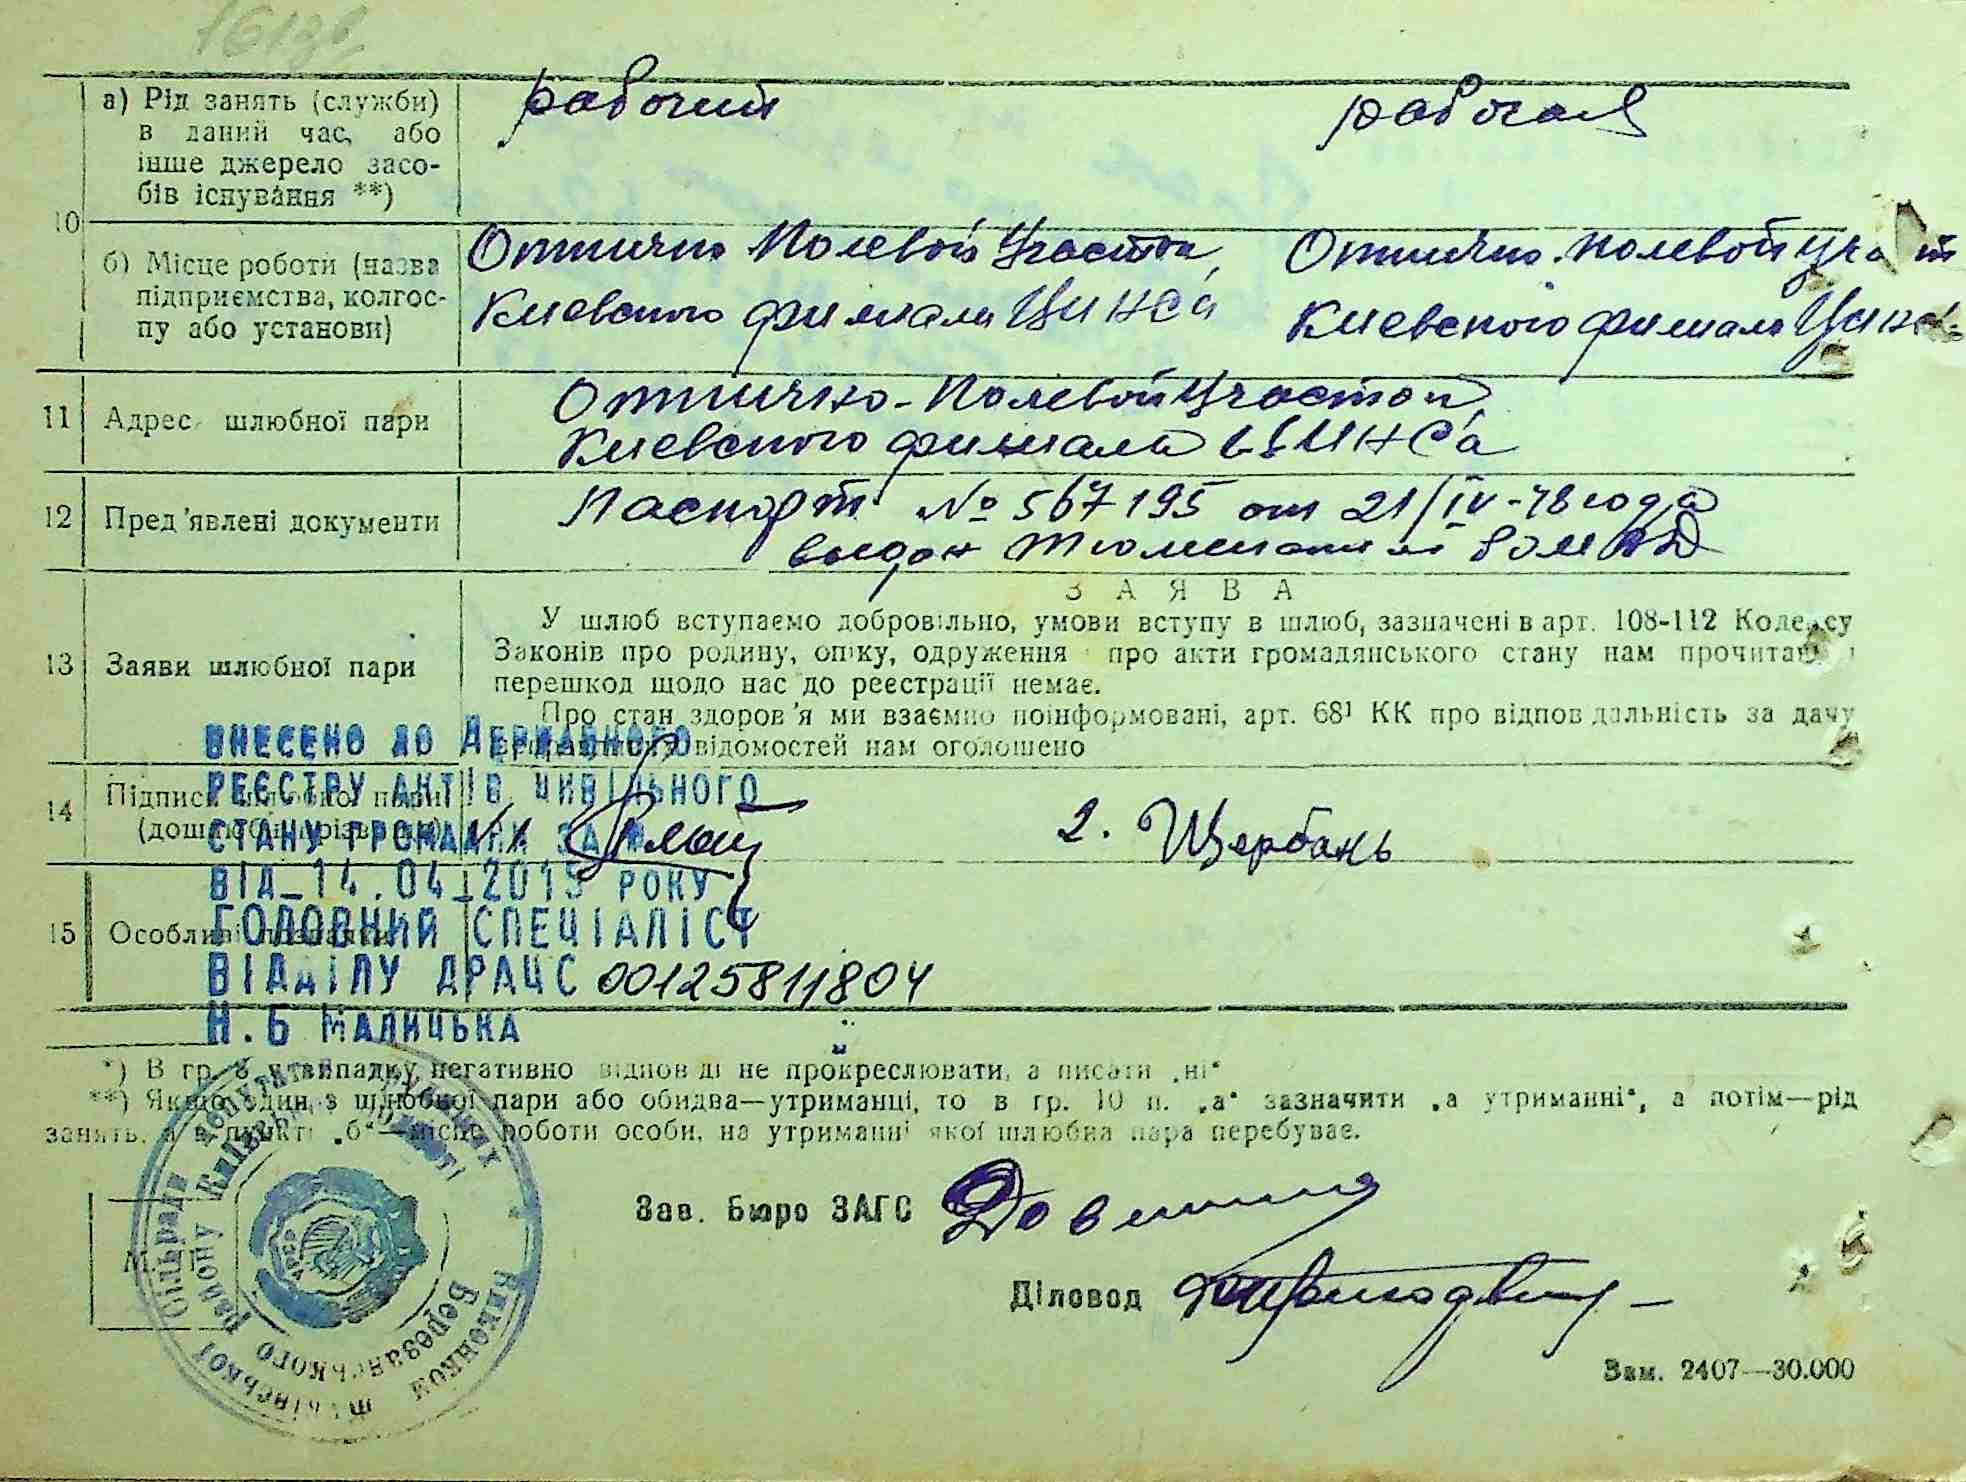 а) Рід занять (службы)
в даний час, або
інше джерело засо-
бів існування **)
рабочий
рабочая
10
б) Місце роботи (назва
підприємства, колгос-
пу або установи)
Киевского филиала ЦИНСа
Киевского филиала
11
Адрес шлюбної пари
Киевского филиала ЦИНСа
12
Пред'явлені документи
Паспорт № 567195 от 21/IV-48 года
выдан
ЗАЯВА
13
Заяви шлюбної пари
У шлюб вступаємо добровільно, умови вступу в шлюб, зазначені в арт. 108-112 Кодексу
Законів про родину, опіку, одруження про акти громадянського стану нам прочитані
перешкод щодо нас до реєстрації немає.
Про стан здоров'я ми взаємно поінформовані, арт. 68¹ КК про відповідальність за дачу
відомостей нам оголошено
ВНЕСЕНО ДО ДЕРЖАВНОГО
РЕЄСТРУ АКТІВ ЦИВІЛЬНОГО
СТАНУ ГРОМАДЯН ЗА №
ВІД 14.04.2015 РОКУ
ГОЛОВНИЙ СПЕЦІАЛІСТ
ВІДДІЛУ ДРАЦС 00125811804
Н.Б МАЛИЦЬКА
14
Підписи шлюбної пари
(дошлюбні прізвища)
2. Щербань
15
Особливі
*) В гр. 8 у випадку негативно відповіді не прокреслювати, а писати „ні“
**) Якщо один з шлюбної пари або обидва—утриманці, то в гр. 10 п. „а“ зазначити „а утриманні“, а потім—рід
занять, а в пункті „б“—місце роботи особи, на утриманні якої шлюбна пара перебуває.
М. П.
Зав. Бюро ЗАГС
Діловод
Виконком
сільради депутатів трудящих
Березанського району Київської області
УРСР
Зам. 2407—30.000